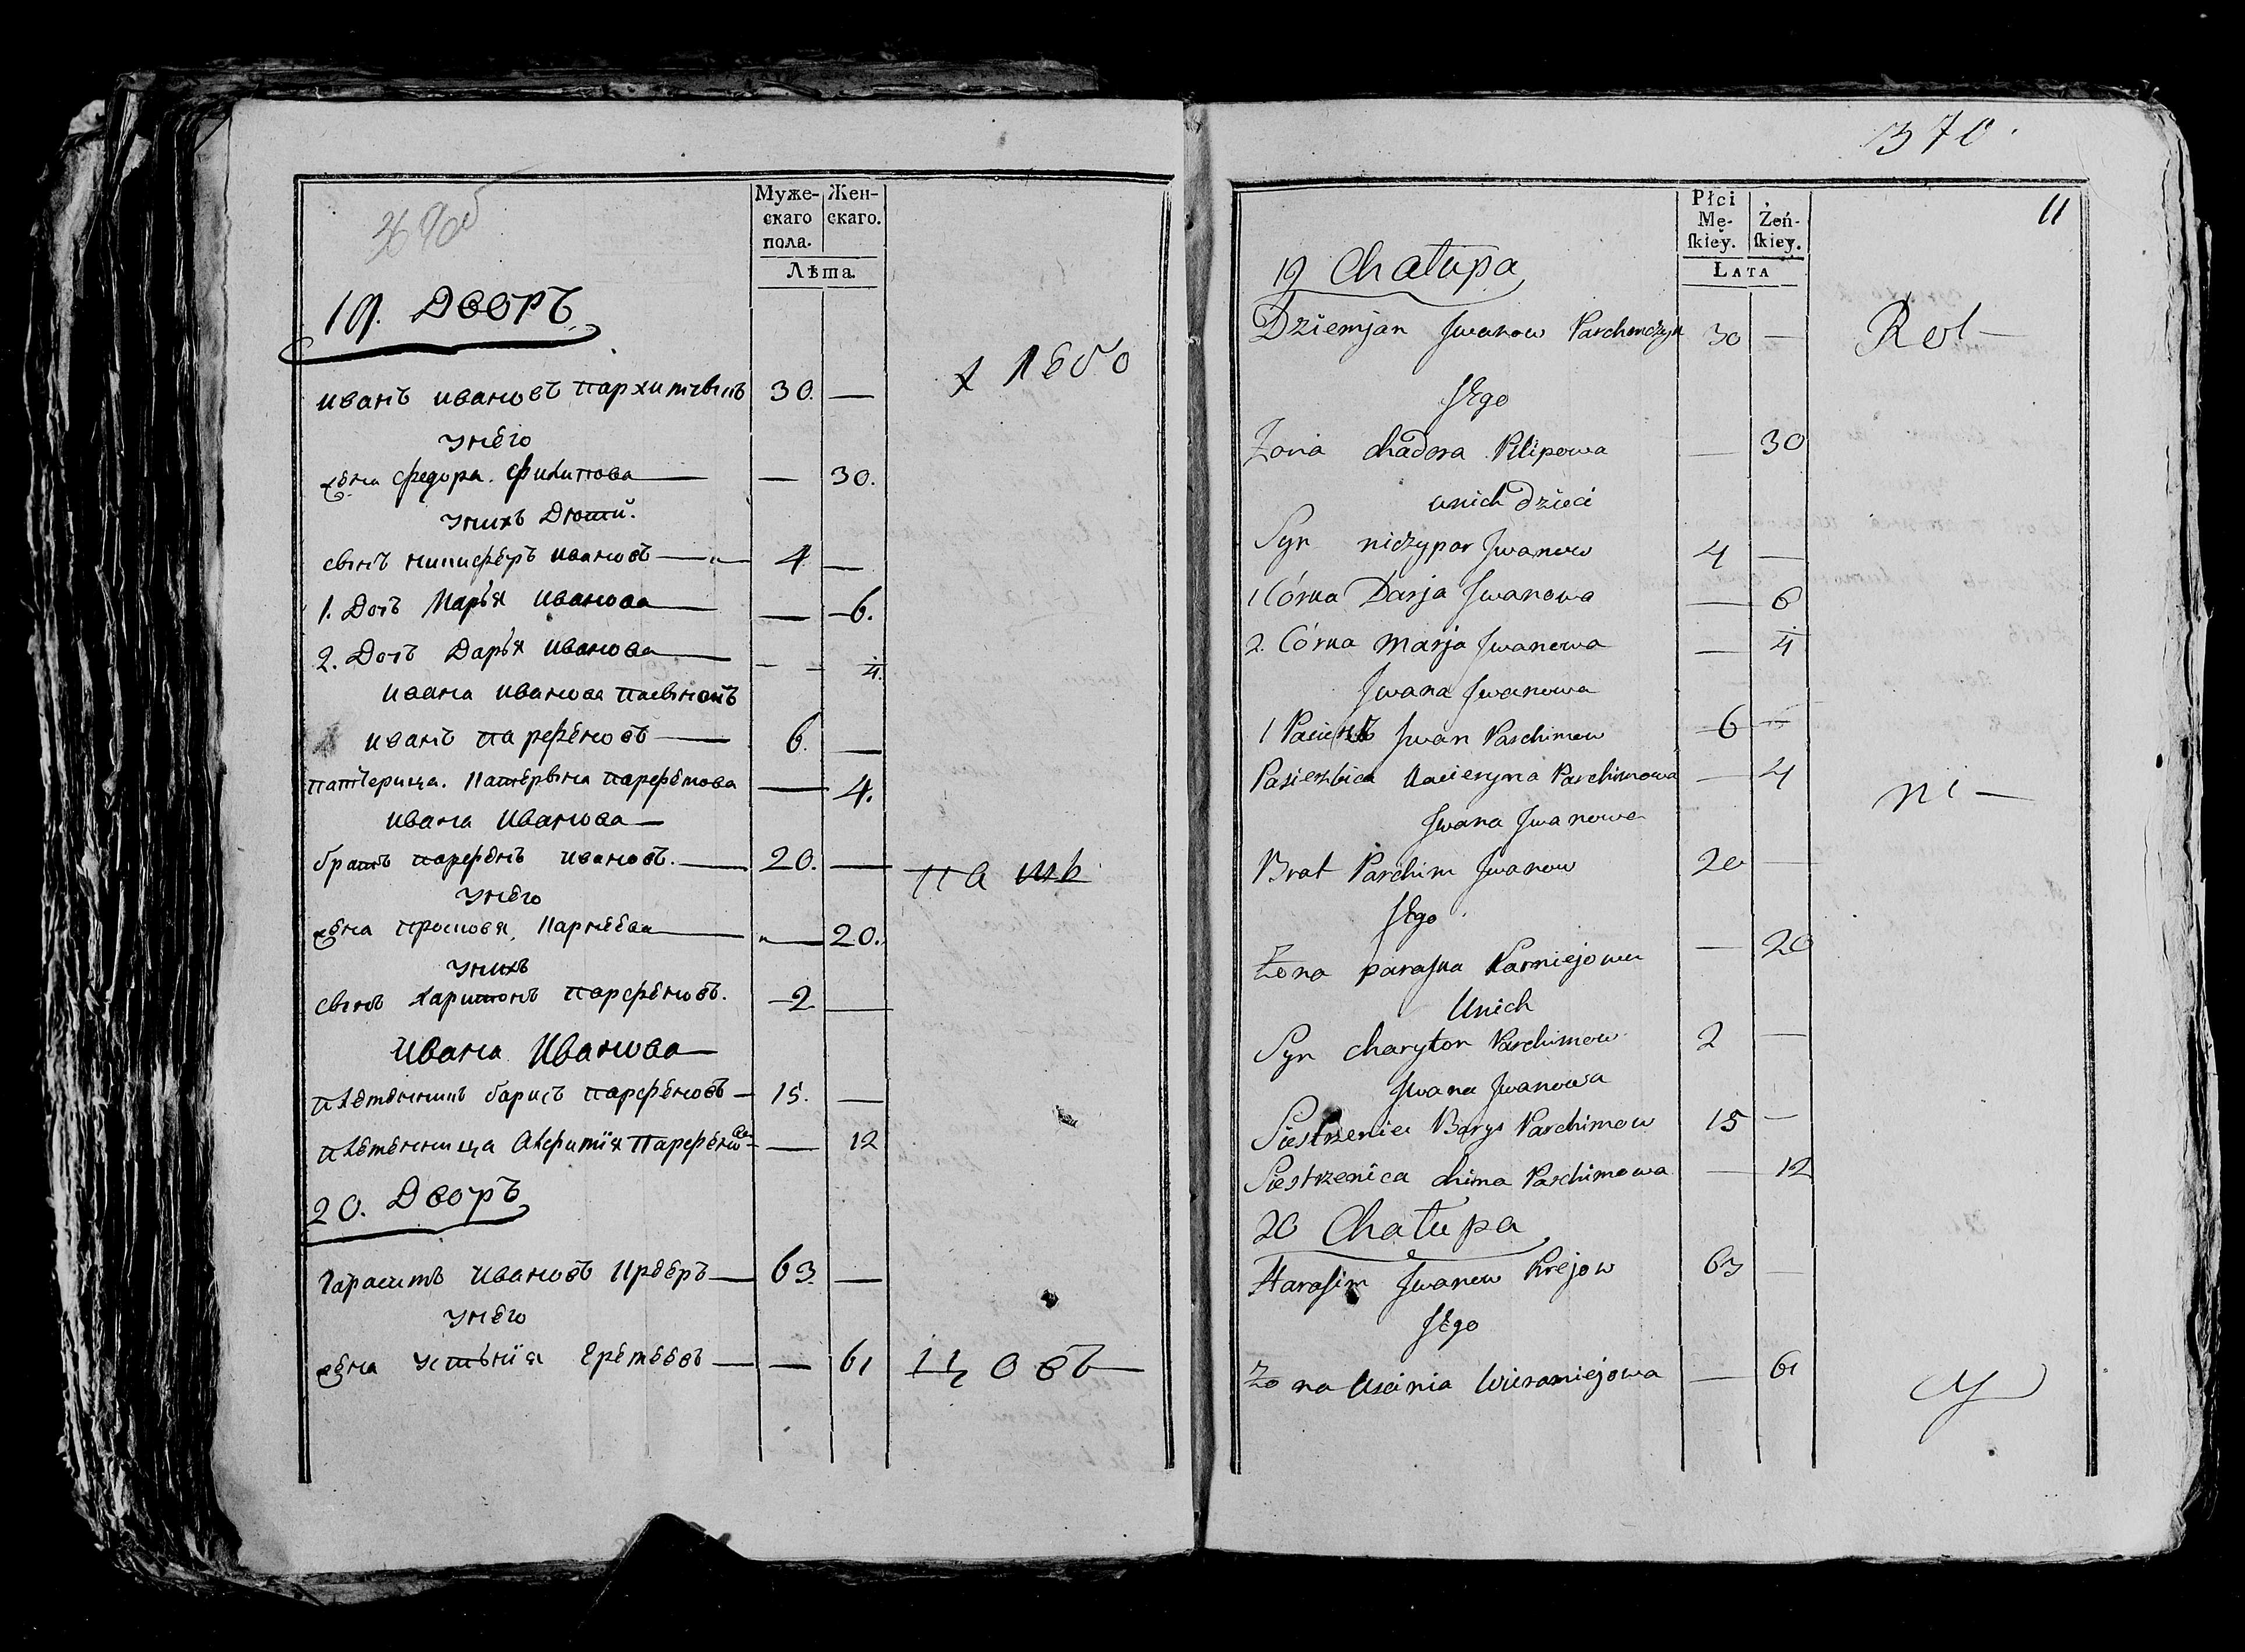 Муже-
скаго
пола.
Жен-
скаго.
Лѣта.
19. Дворъ
Иванъ Ивановъ 30. —
у него
жена Федора Филипова — — 30.
у них Дѣти.
сынъ Никифоръ Ивановъ — 4 —
1. Дочь Марья Иванова — — 6.
2. Дочь Дарья Иванова — — 4.
Ивана Иванова пасынокъ
Иванъ Парфеновъ — 6. —
патчерица. Катерына Парфенова — 4.
Ивана Иванова —
братъ Парфенъ Ивановъ. — 20. —
у него
жена Просковя Карнеева — — 20.
у нихъ
сынъ Харитонъ Парфеновъ. 2 —
Ивана Иванова —
племенникъ Барисъ Парфеновъ — 15. —
племенница Парфенова — 12
20. Дворъ
Гарасимъ Ивановъ — 63. —
у него
жена Устинія Еремеевъ — — 61
па
цовъ
370.
11
Płci
Mę-
ſkiey.
Żeń-
ſkiey.
Lata
19 Chałupa
Dziemjan Jwanow Parchomczyk 30 —
Jego
Żona Chadora Pilipowa — 30
unich Dzieci
Syn niczypor Jwanow 4 —
1 Córka Darja Jwanowa — 6
2. Córka Marja Jwanowa — 4
Jwana Jwanowa
1 Jwan Parchimow 6 —
Pasierzbica Kacieryna Parchimowa — 4
Jwana Jwanowa
Brat Parchim Jwanow 20 —
Jego
Żona paraſka Karniejowa — 20
Unich
Syn charyton Parchimow 2 —
Jwana Jwanowa
Siestrzeniec Borys Parchimow 15 —
Siestrzenica chima Parchimowa — 12
20 Chałupa
Haraſim Jwanow 63 —
Jego
Żona Uscinia — 61
ni —